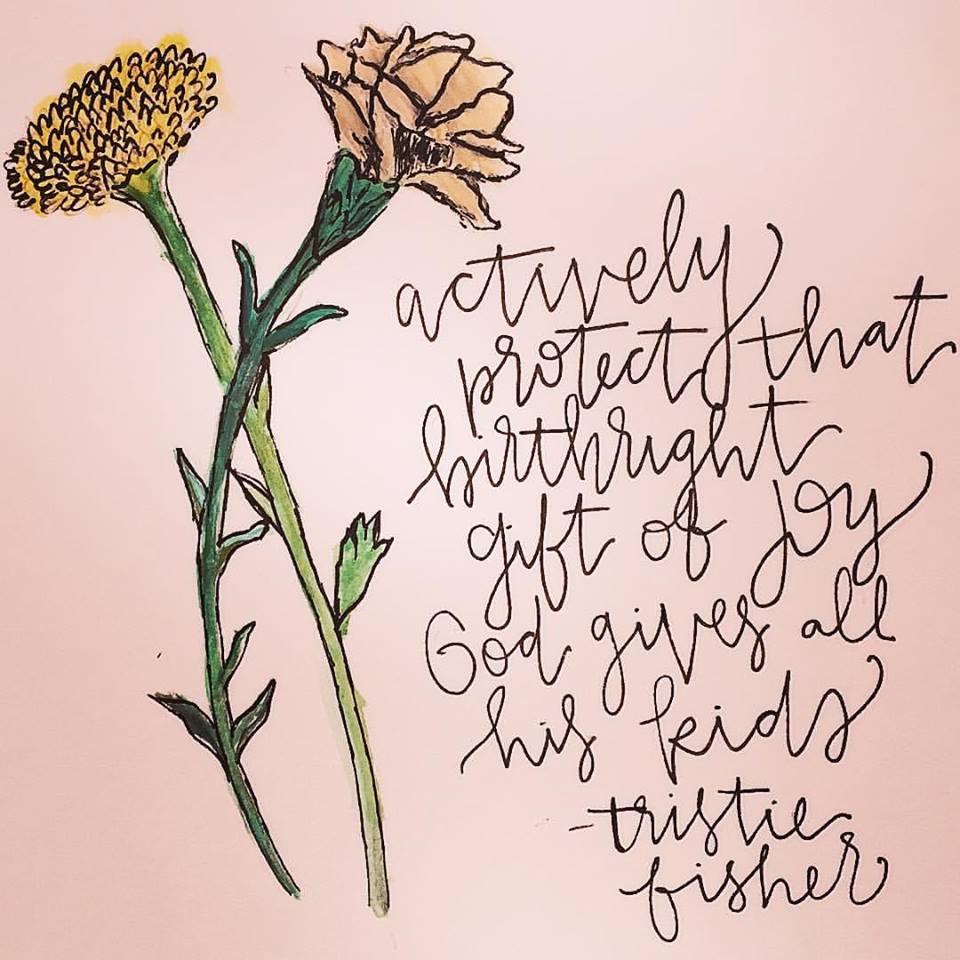 actively
protect that
birthright
gift of joy
God gives all
his kids
-tristie
fisher